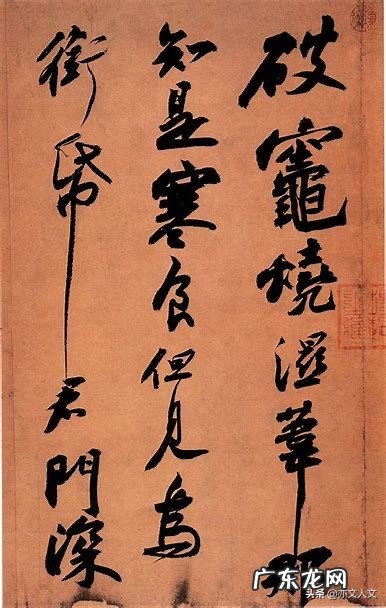 破竈燒濕葦那
知是寒食但見烏
銜帋君門深
广东龙网
头条 @亦文人文